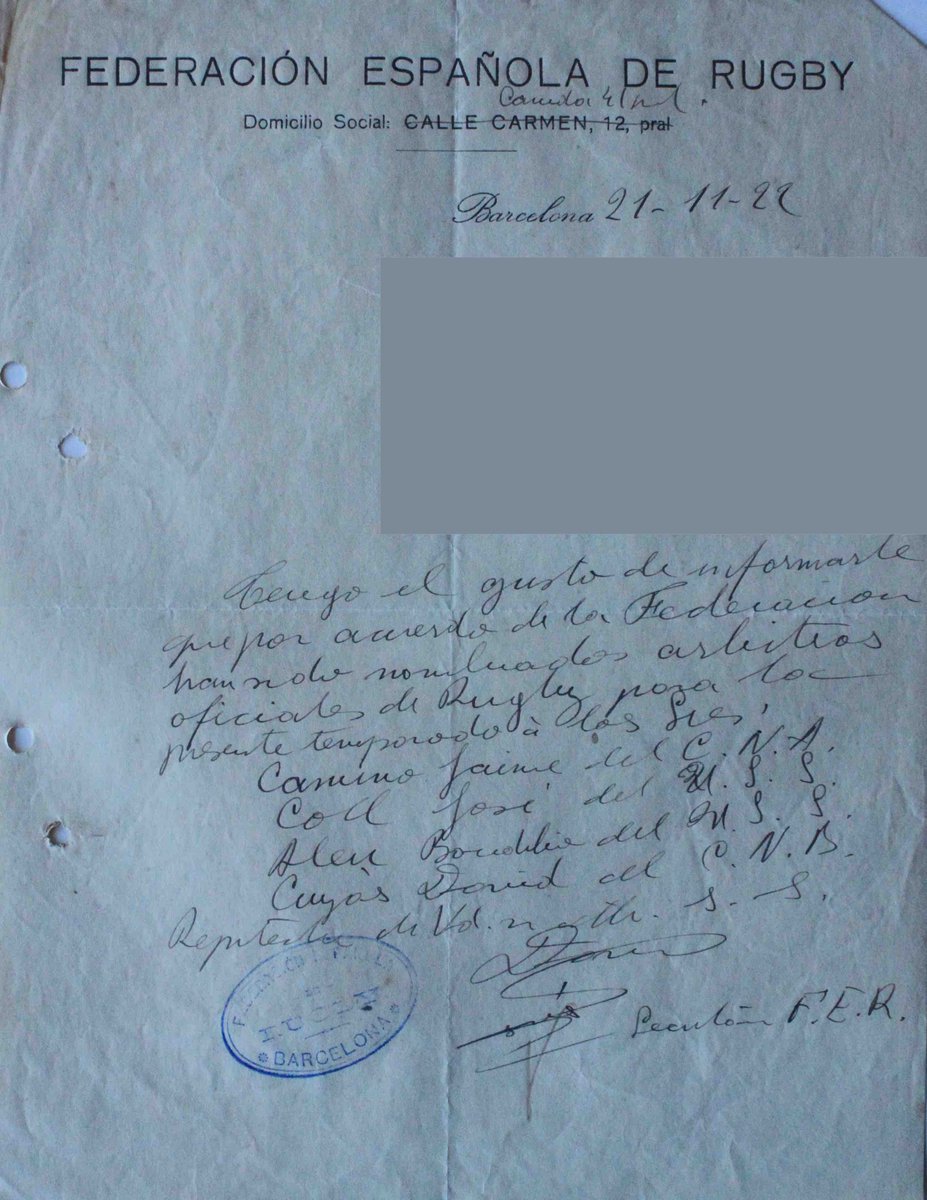 FEDERACIÓN ESPAÑOLA DE RUGBY
Canuda 41 pral.
Domicilio Social: CALLE CARMEN, 12, pral
Barcelona 21-11-22
Tengo el gusto de informarle
que por acuerdo de la Federacion
han sido nombrados arbitros
oficiales de Rugby para la
presente temporada à los Sres,
Camino Jaime del C. N. A.
Coll José del U. S. S.
Alen del U. S. S.
Cuyàs David del C. N. B.
de Vd. S. S.
David
Secretario F.E.R.
BARCELONA